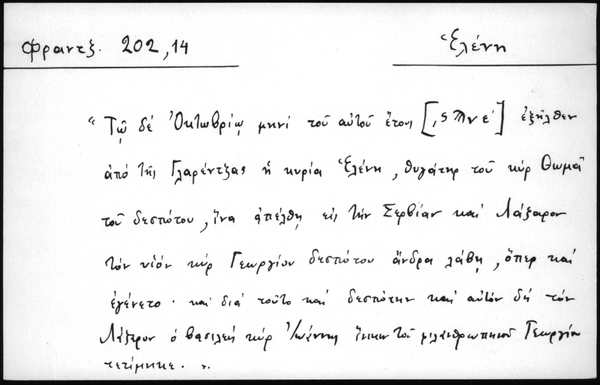 Φραντζ. 202,14
Ἑλένη
"Τῷ δέ Ὀκτωβρίῳ μηνί τοῦ αὐτοῦ ἔτους [͵ϛϠνε'] ἐξῆλθεν
ἀπό τῆς Γλαρέντζας ἡ κυρία Ἑλένη, θυγάτηρ τοῦ κύρ Θωμᾶ
τοῦ δεσπότου, ἵνα ἀπέλθῃ εἰς τήν Σερβίαν καί Λάζαρον
τόν υἱόν κύρ Γεωργίου δεσπότου ἄνδρα λάβῃ, ὅπερ καί
ἐγένετο· καί διά τοῦτο καί δεσπότην καί αὐτόν δή τόν
Λάζαρον ὁ βασιλεύς κύρ Ἰωάννης τοῦ Γεωργίου
τετίμηκε.".